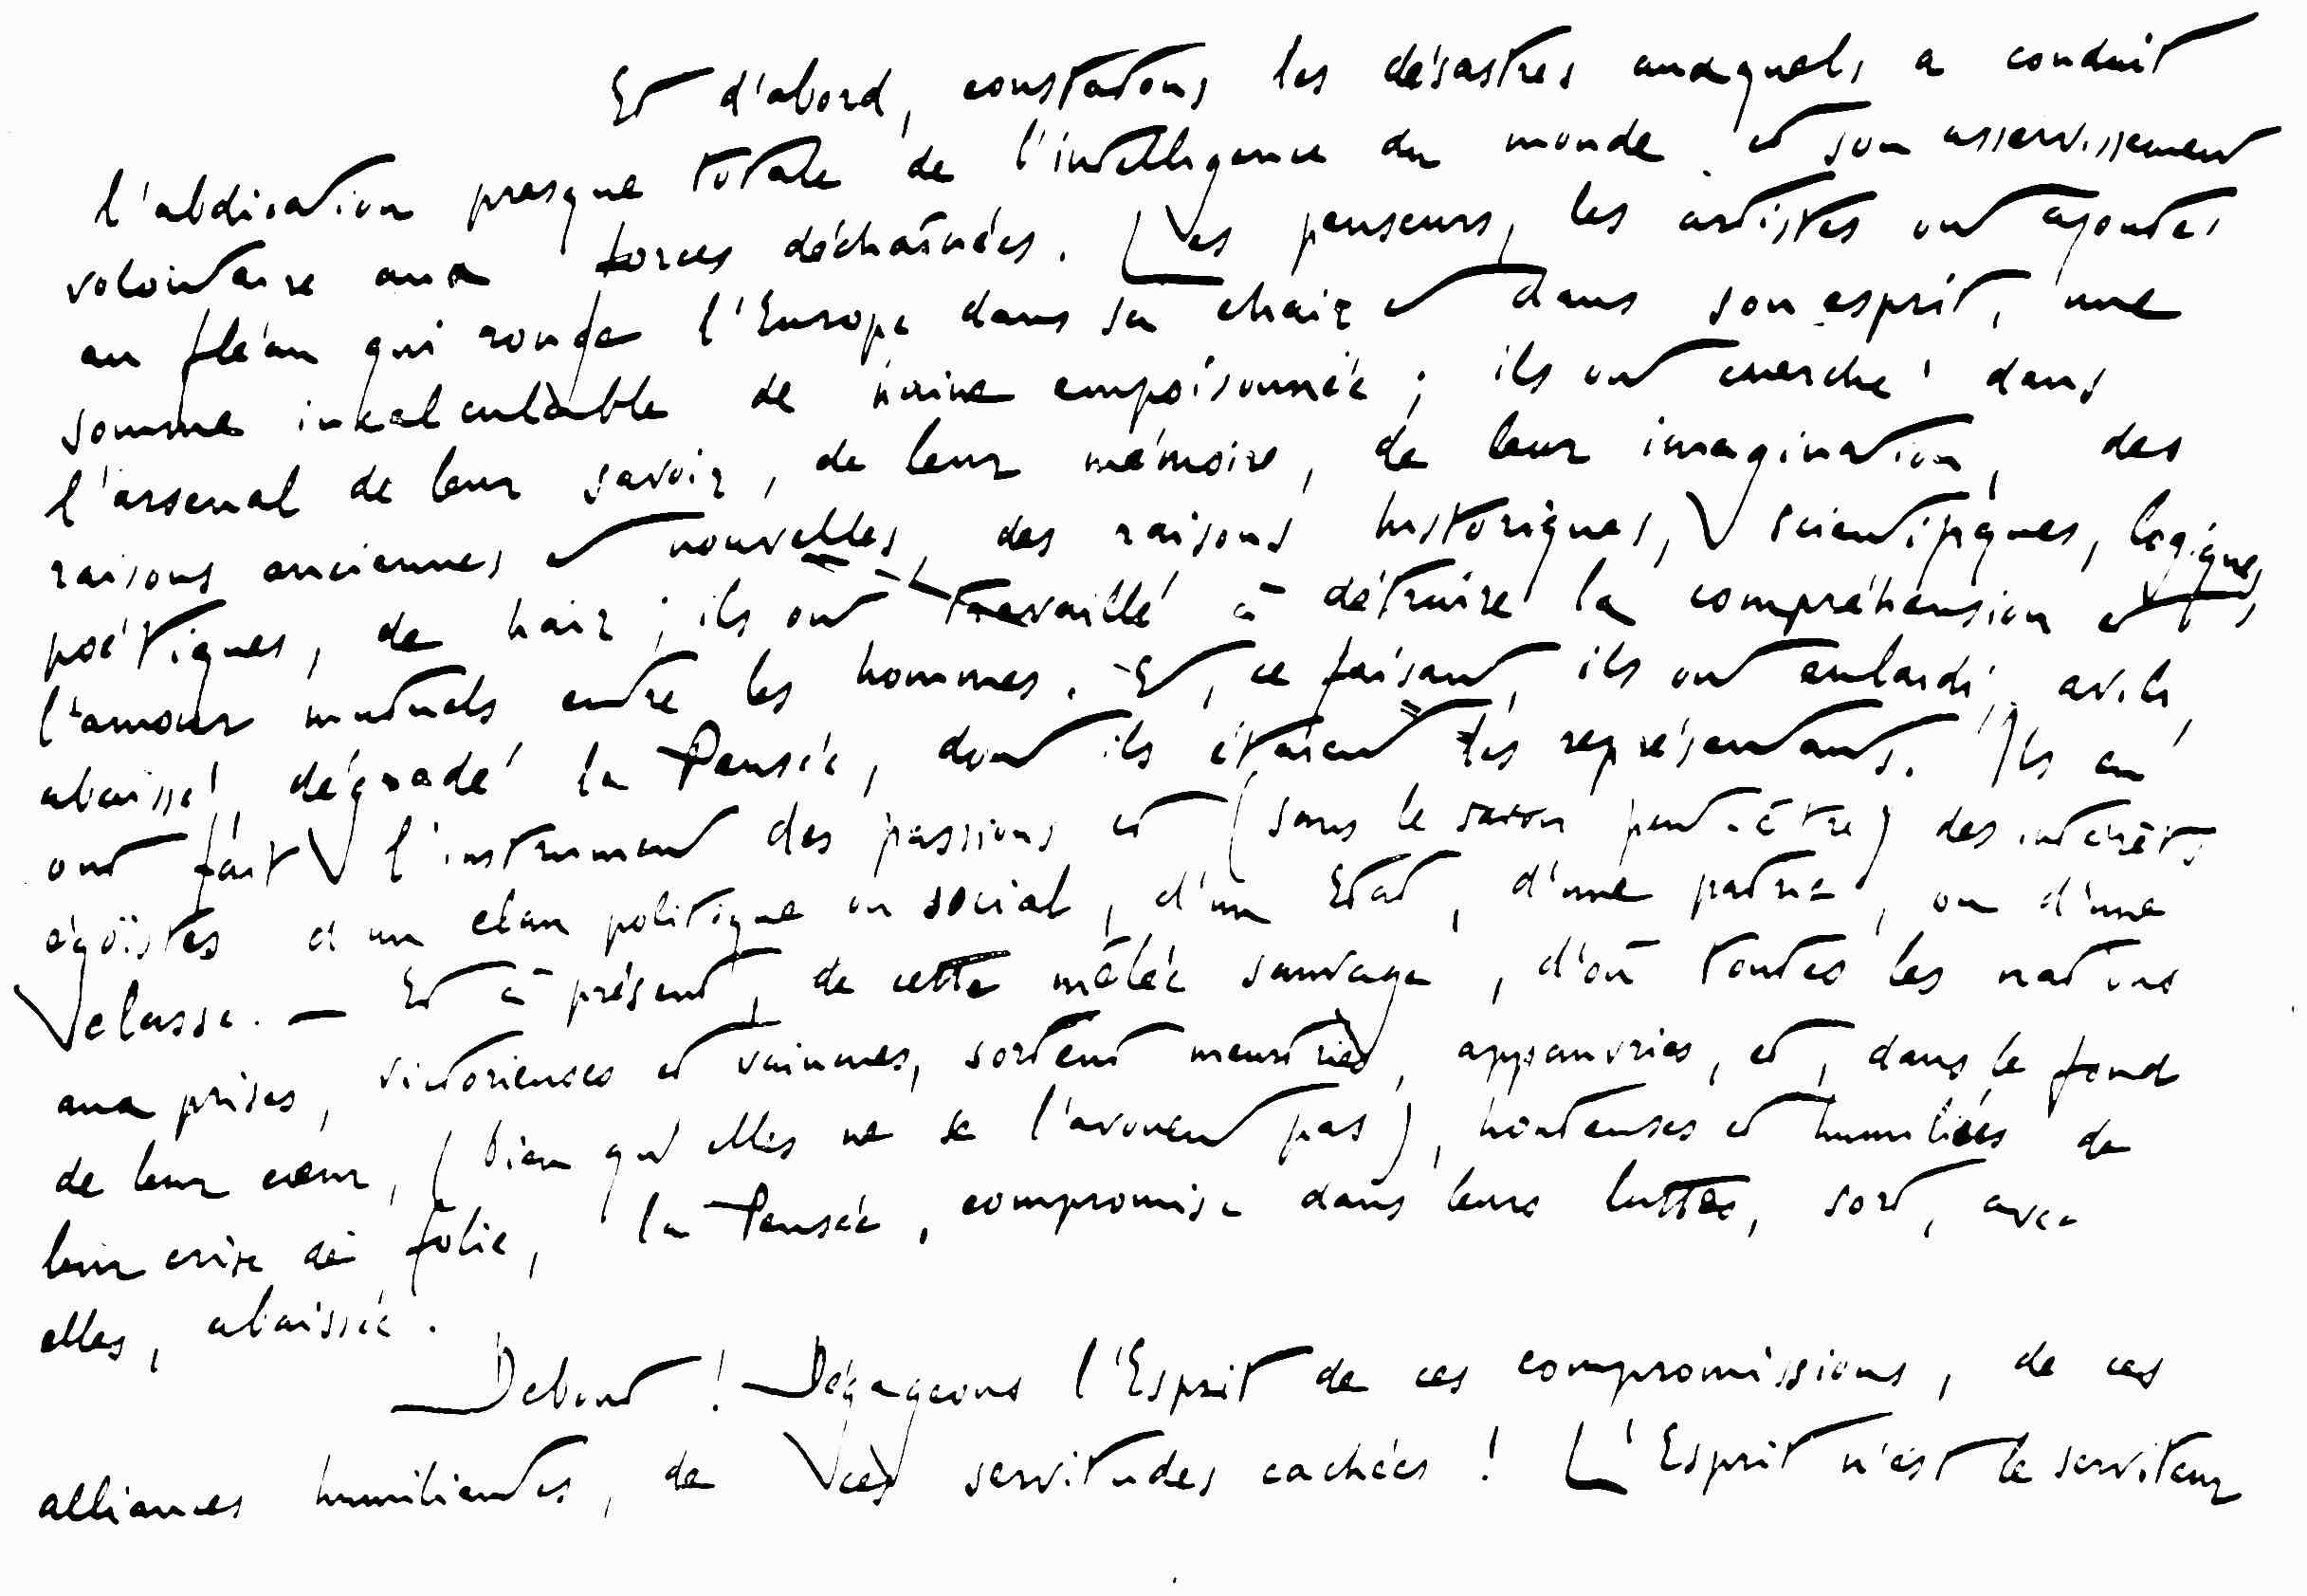 Et d'abord, constatons les désastres auxquels a conduit
l'abdication presque totale de l'intelligence du monde et son asservissement
volontaire aux forces déchaînées. Les penseurs, les artistes ont ajouté
au fléau qui ronge l'Europe dans sa chair et dans son esprit, une
somme incalculable de haine empoisonnée ; ils ont cherché dans
l'arsenal de leur savoir, de leur mémoire, de leur imagination, des
raisons anciennes et nouvelles, des raisons historiques, scientifiques, logiques,
poétiques, de haïr ; ils ont travaillé à détruire la compréhension et
l'amour mutuels entre les hommes. Et, ce faisant, ils ont enlaidi, avili,
abaissé, dégradé la Pensée, dont ils étaient les représentants. Ils en
ont fait l'instrument des passions et (sans le savoir peut-être) des intérêts
égoïstes d'un clan politique ou social, d'un Etat, d'une patrie, ou d'une
classe. — Et à présent, de cette mêlée sauvage, d'où toutes les nations
aux prises, victorieuses et vaincues, sortent meurtries, appauvries, et, dans le fond
de leur cœur, (bien qu'elles ne se l'avouent pas), honteuses et humiliées de
leur crise de folie, la Pensée, compromise dans leurs luttes, sort, avec
elles, abaissée.
Debout ! Dégageons l'Esprit de ces compromissions, de ces
alliances humiliantes, de ces servitudes cachées ! L'Esprit n'est le serviteur